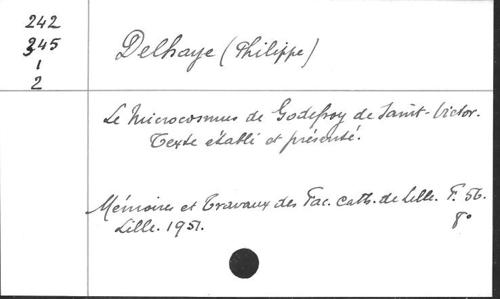 242
345
1
2
Delhaye (Philippe)
Le Microcosmus de Godefroy de Saint-Victor.
Texte établi et présenté.
Mémoires et Travaux des Fac. cath. de Lille. F. 56.
Lille. 1951. 8°